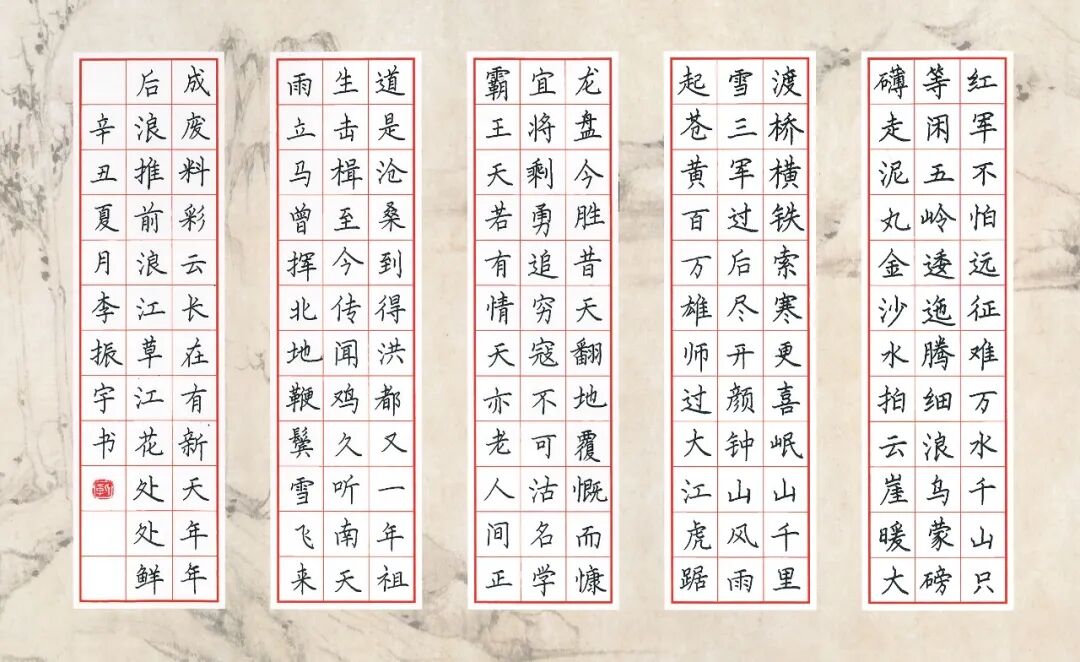 红军不怕远征难万水千山只
等闲五岭逶迤腾细浪乌蒙磅
礴走泥丸金沙水拍云崖暖大
渡桥横铁索寒更喜岷山千里
雪三军过后尽开颜钟山风雨
起苍黄百万雄师过大江虎踞
龙盘今胜昔天翻地覆慨而慷
宜将剩勇追穷寇不可沽名学
霸王天若有情天亦老人间正
道是沧桑到得洪都又一年祖
生击楫至今传闻鸡久听南天
雨立马曾挥北地鞭鬓雪飞来
成废料彩云长在有新天年年
后浪推前浪江草江花处处鲜
辛丑夏月李振宇书